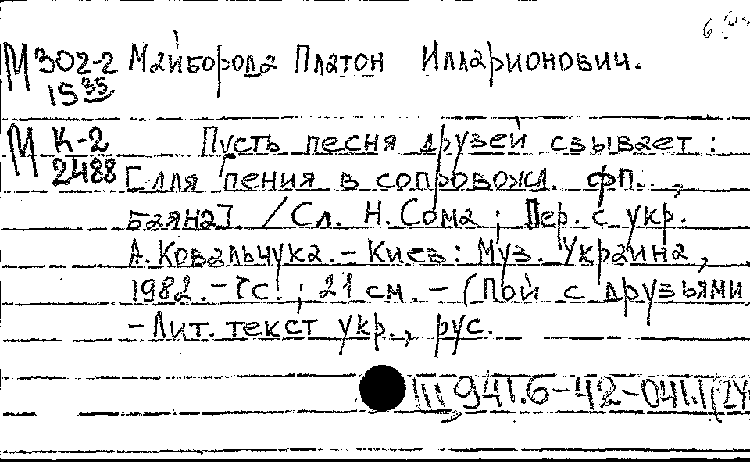 М 302-2 Майборода Платон Илларионович.
15 35
М К-2 Пусть песня друзей сзывает :
2488 [для пения в сопровожд. фп.,
баяна]. / Сл. Н. Сома ; Пер. с укр.
А. Ковальчука. - Киев : Муз. Украина,
1982. - 7с. ; 21 см. - (Пой с друзьями
- Лит. текст укр., рус.
Ш 941.6-42-041.1(2У